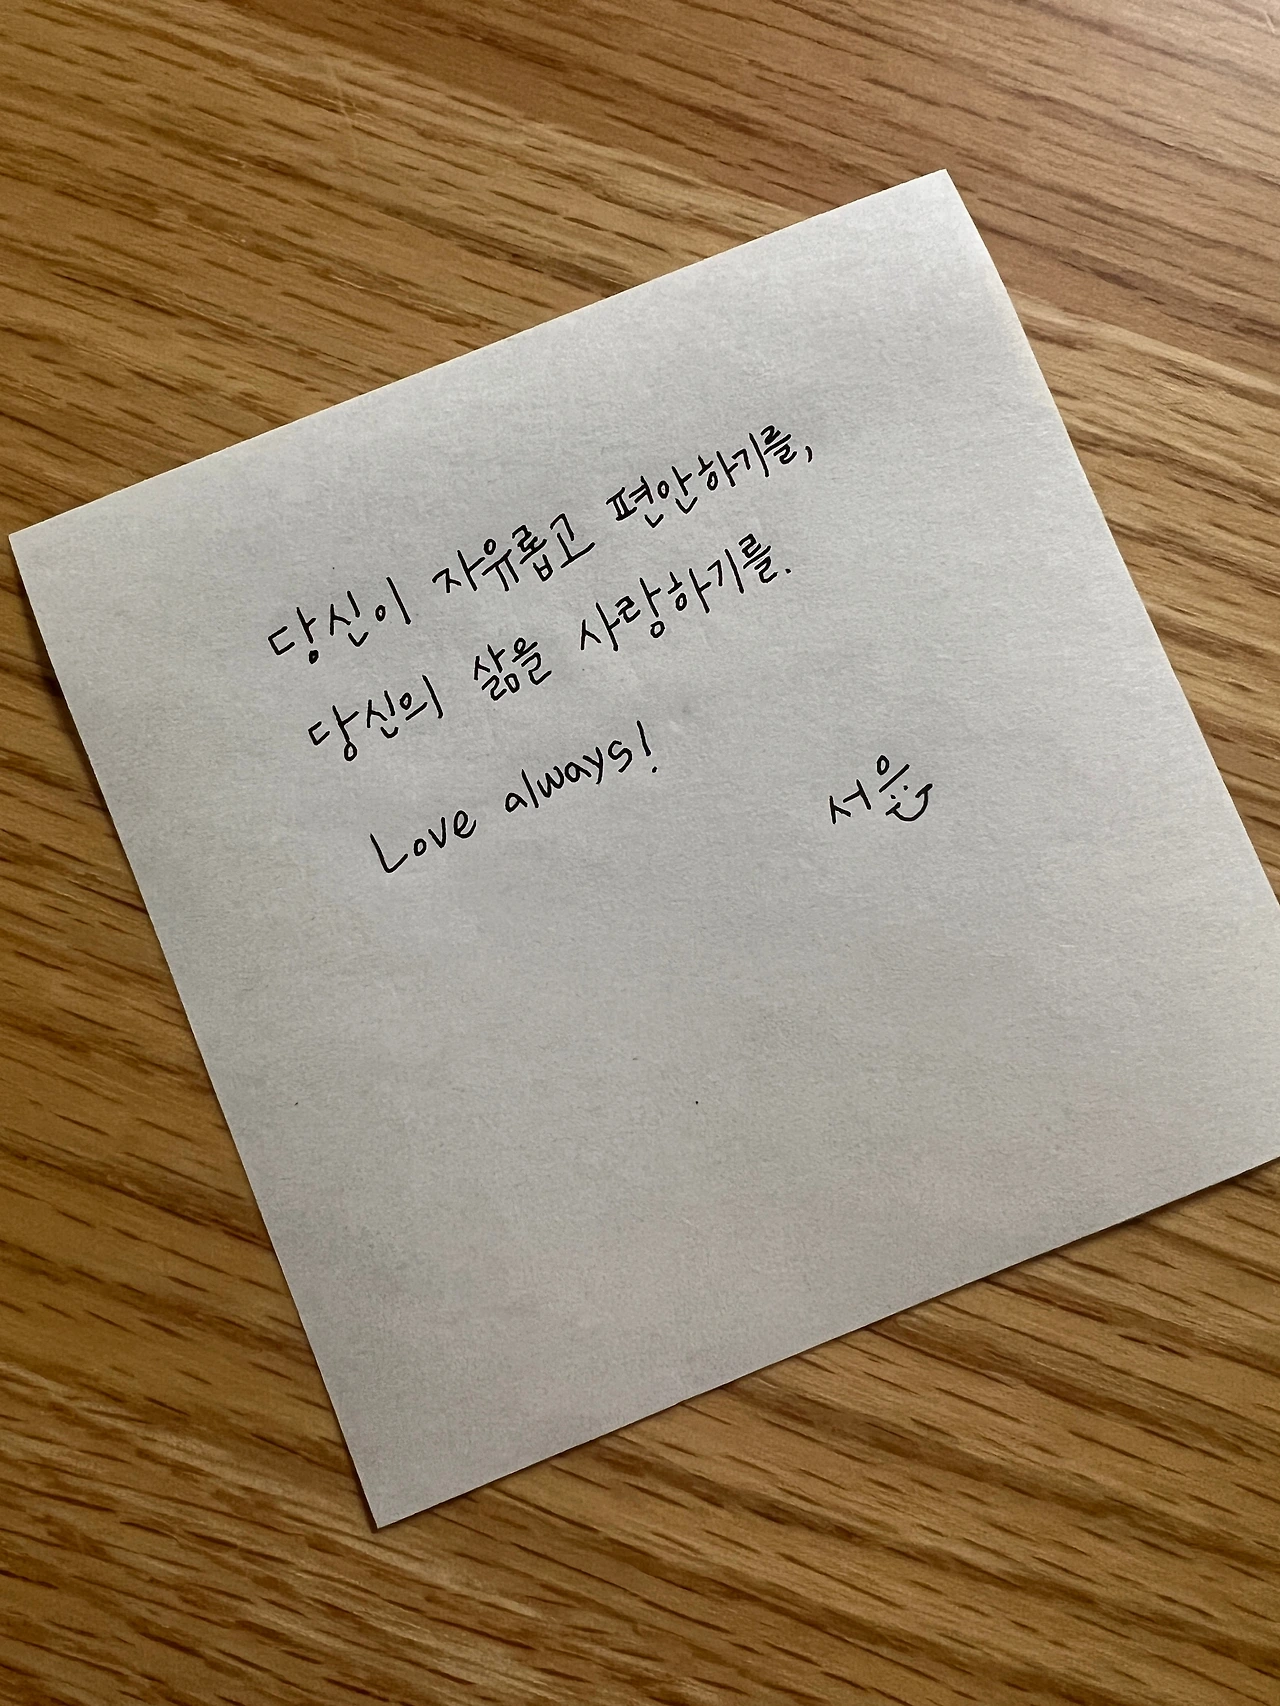 당신이 자유롭고 편안하기를,
당신의 삶을 사랑하기를.
Love always!
서윤